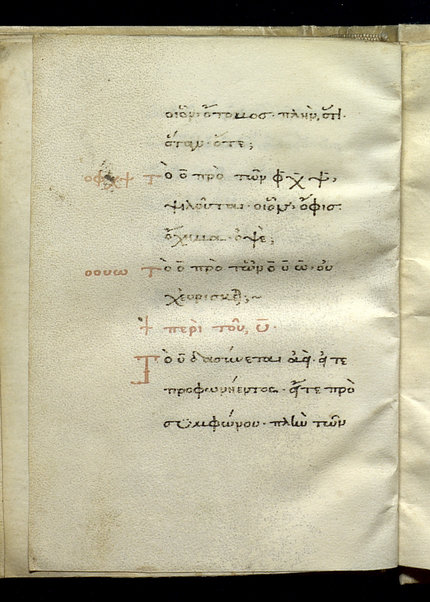 οἷον ὅτομος· πλὴν, ὅτι·
ὅταν· ὅτε;
οφχψ Τὸ ο̄ πρὸ τῶν φ̄· χ̄· ψ̄,
ψιλοῦται· οἷον· ὄφις·
ὄχημα· ὀψὲ;
οουω Τὸ ο̄ πρὸ τῶν ο̄ ῡ ω̄· οὐ
χ εὑρίσκε;~
περὶ τοῦ, ῡ·
Τὸ ῡ δασύνεται ἀεὶ· εἴτε
προφωνήεντος· εἴτε πρὸ
συμφώνου· πλὴν τῶν